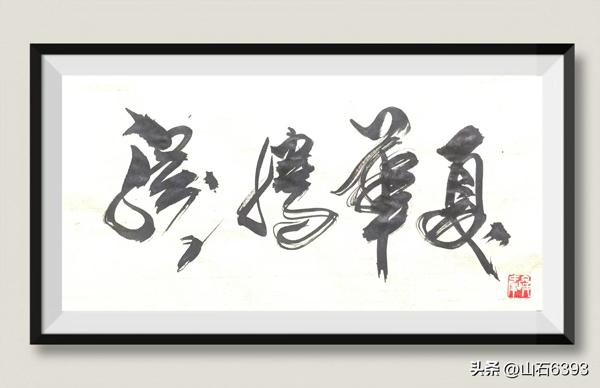 龍騰華夏
头条 @山石6393